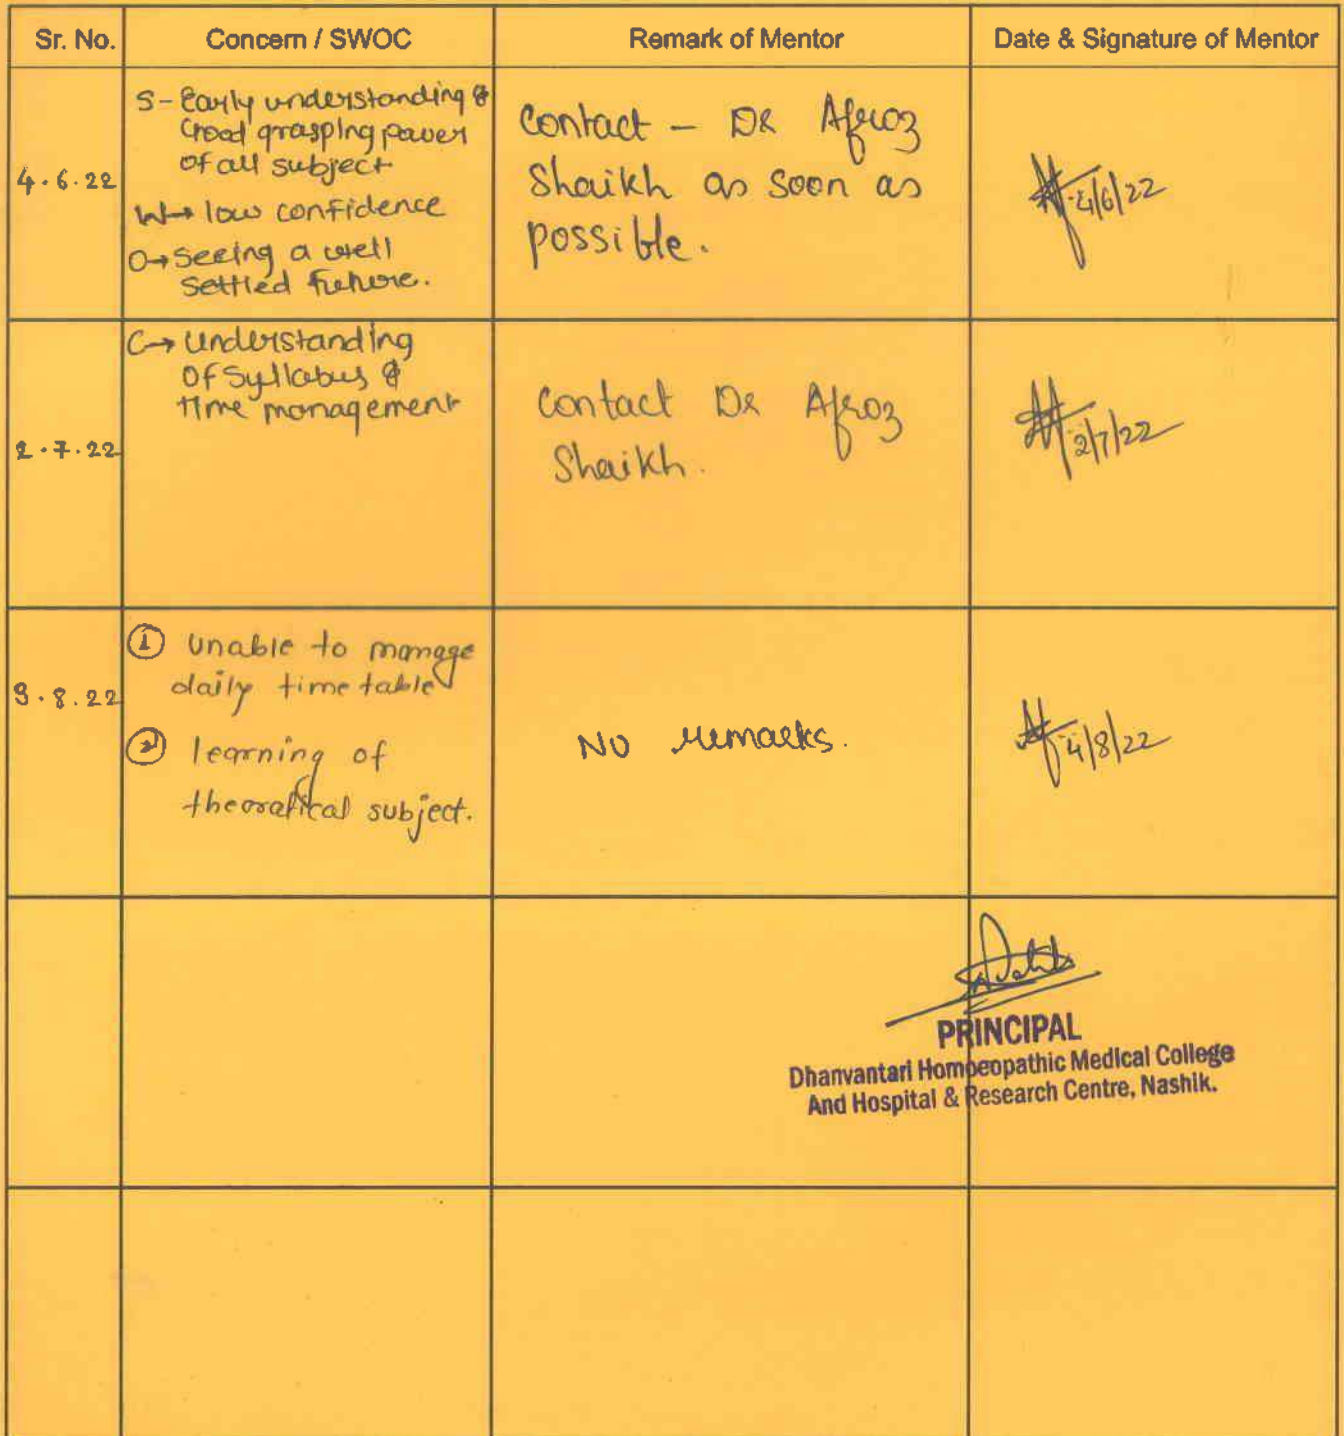 Sr. No. Concern / SWOC Remark of Mentor Date & Signature of Mentor
4.6.22
S- Early understanding &
Good grasping power
of all subject
W→ low confidence
O→ Seeing a well
settled future.
Contact – Dr Afroz
Shaikh as soon as
possible.
4/6/22
2.7.22
C→ Understanding
Of Syllabus &
time management
Contact Dr Afroz
Shaikh.
2/7/22
3.8.22
① Unable to manage
daily time table
② learning of
theoratical subject.
No remarks.
4/8/22
PRINCIPAL
Dhanvantari Homoeopathic Medical College
And Hospital & Research Centre, Nashik.